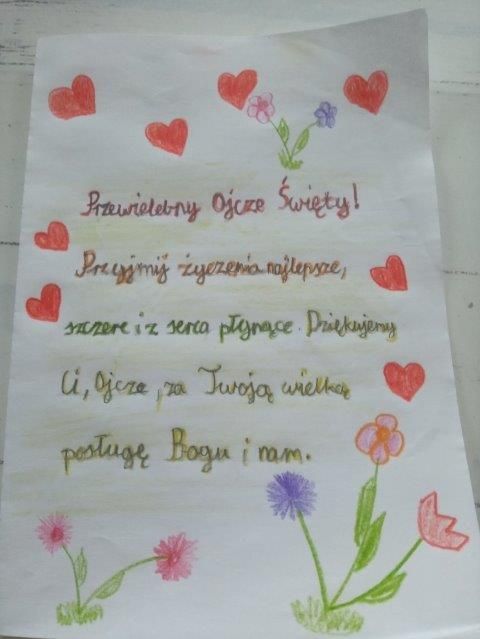 Przewielebny Ojcze Święty!
Przyjmij życzenia najlepsze,
szczere i z serca płynące. Dziękujemy
Ci, Ojcze, za Twoją wielką
posługę Bogu i nam.